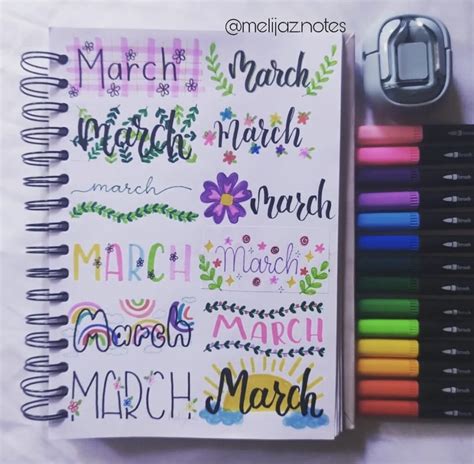 @melijaz.notes
March March
March March
march March
MARCH March
March MARCH
MARCH March